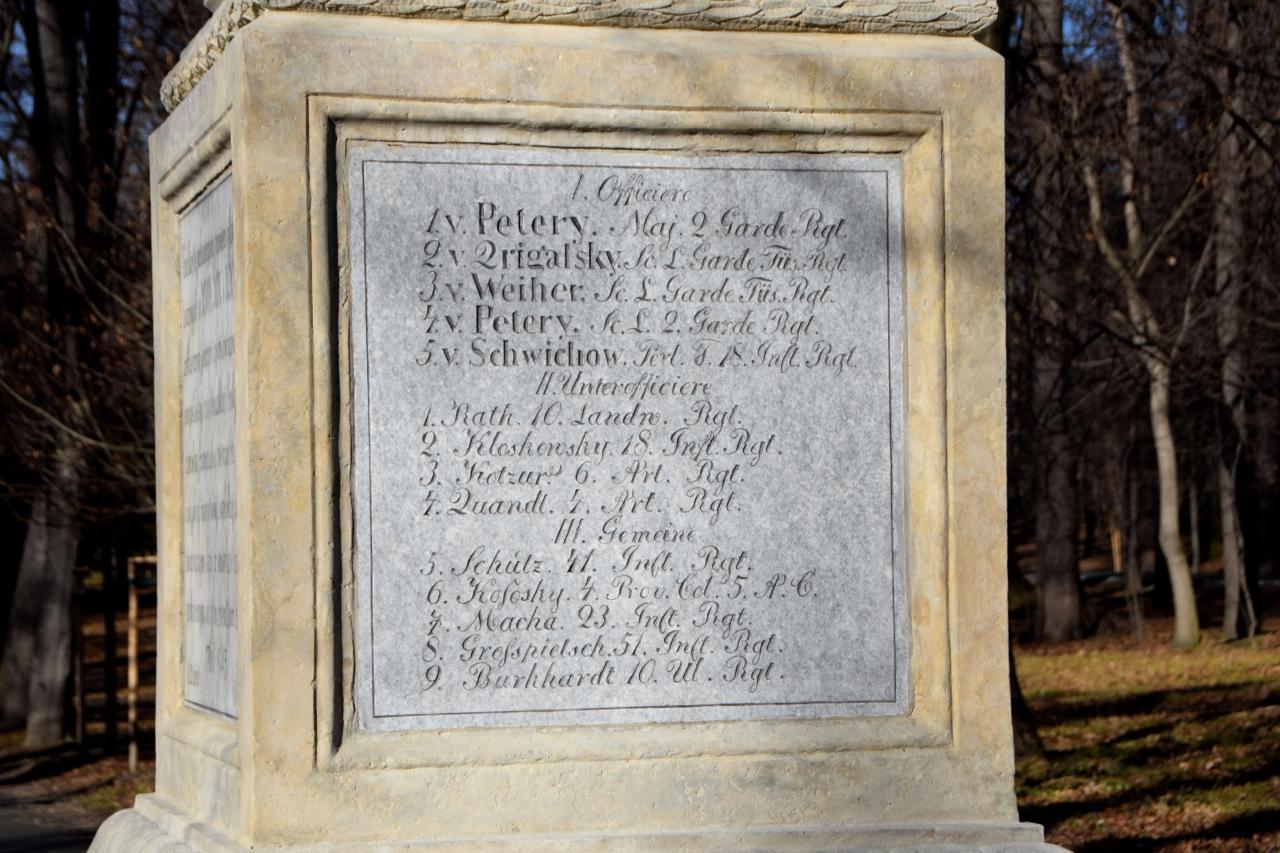 I. Officiere
1.v. Petery. Maj. 2 Garde Rgt.
2. v. Prigaſsky. Sc. L. Garde Füs. Rgt.
3. v. Weiher. Sc. L. Garde Füs. Rgt.
4. v. Petery. Sc. L. 2. Garde Rgt.
5. v. Schwichow. Port. F. 18. Inft. Rgt.
II. Unterofficiere
1. Rath. 10. Landw. Rgt.
2. Kloskowsky. 18. Inft. Rgt.
3. Kotzur 6. Art. Rgt.
4. Quandt. 4. Art. Rgt.
III. Gemeine
5. Schütz. 41. Inft. Rgt.
6. Koſosky. 4. Prov. Col. 5. A. C.
7. Macha. 23. Inft. Rgt.
8. Groſspietsch. 51. Inft. Rgt.
9. Burkhardt 10. Ul. Rgt.